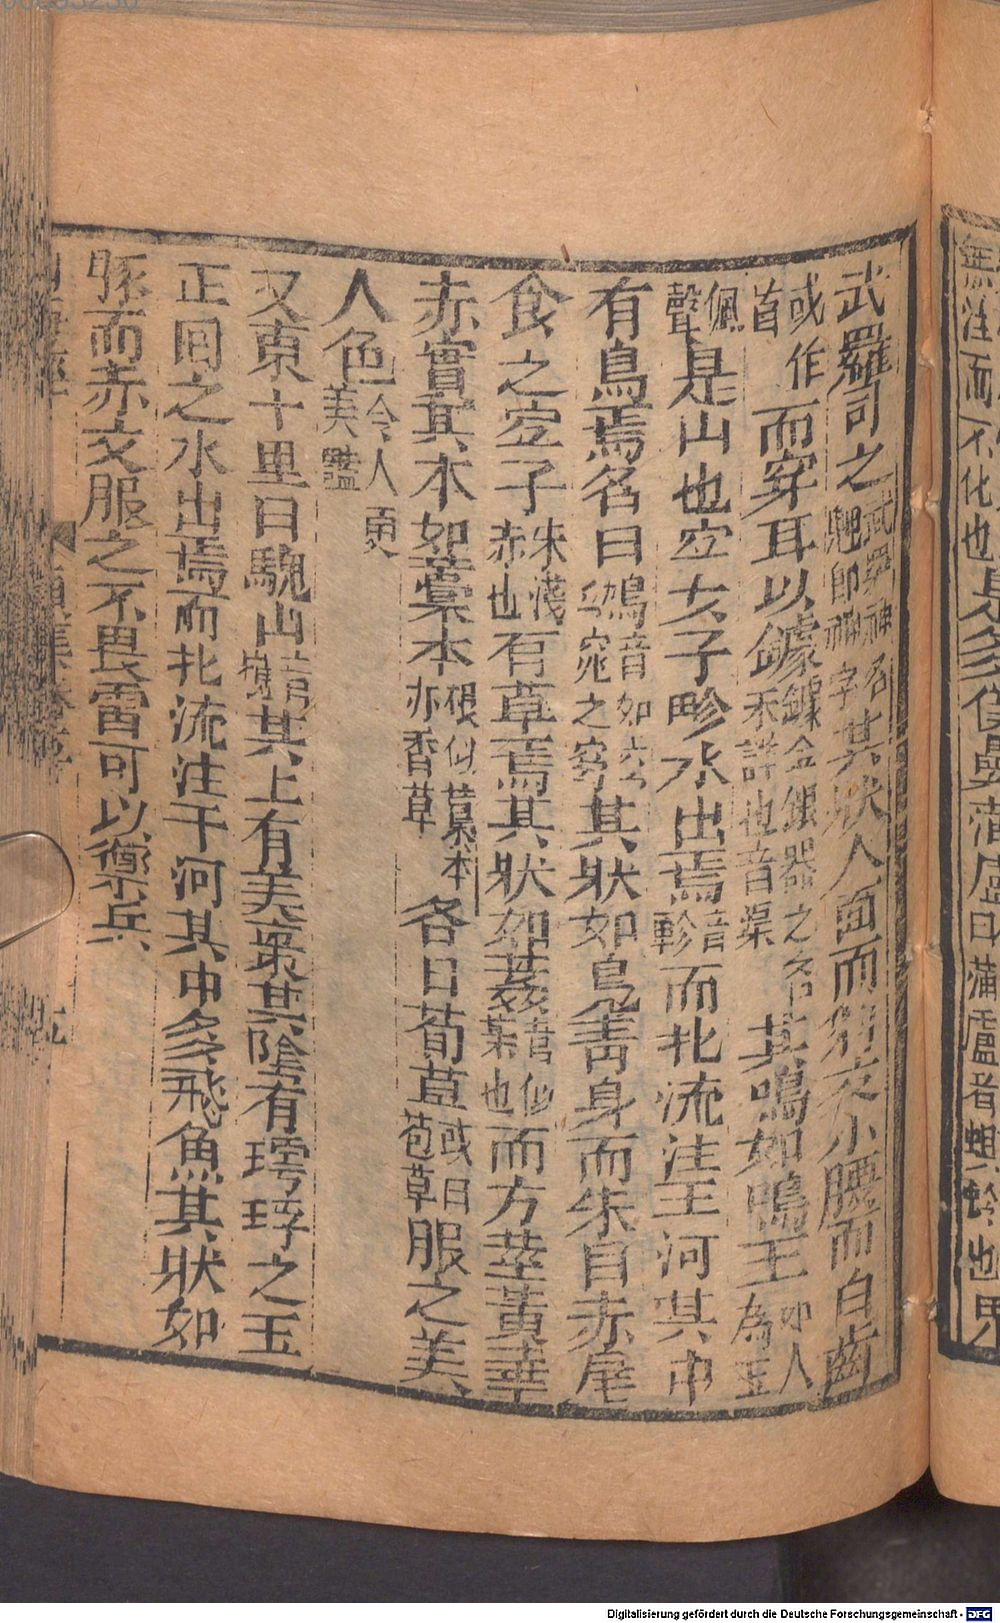 無注而不化也是多僕纍蒲盧曰蒲盧者蜾蠃也
武羅司之武羅神名䰠即神字其狀人面而豹文小腰而白齒
或作首而穿耳以鐻鐻金銀器之名未詳也音渠其鳴如鳴玉如人為玉
佩聲是山也宜女子畛水出焉音軫而北流注王河其中
有鳥焉名曰鴢音如窈窕之窈其狀如鳧青身而朱目赤尾
食之宜子朱淺赤也有草焉其狀如葌菅似茅也而方莖黃華
赤實其本如藁本根似藁本亦香草名曰荀草或曰苞草服之美
人色令人更美艷
又東十里曰騩山音媿其上有美棗其陰有㻬琈之玉
正回之水出焉而北流注于河其中多飛魚其狀如
豚而赤文服之不畏雷可以禦兵
Digitalisierung gefördert durch die Deutsche Forschungsgemeinschaft - DFG